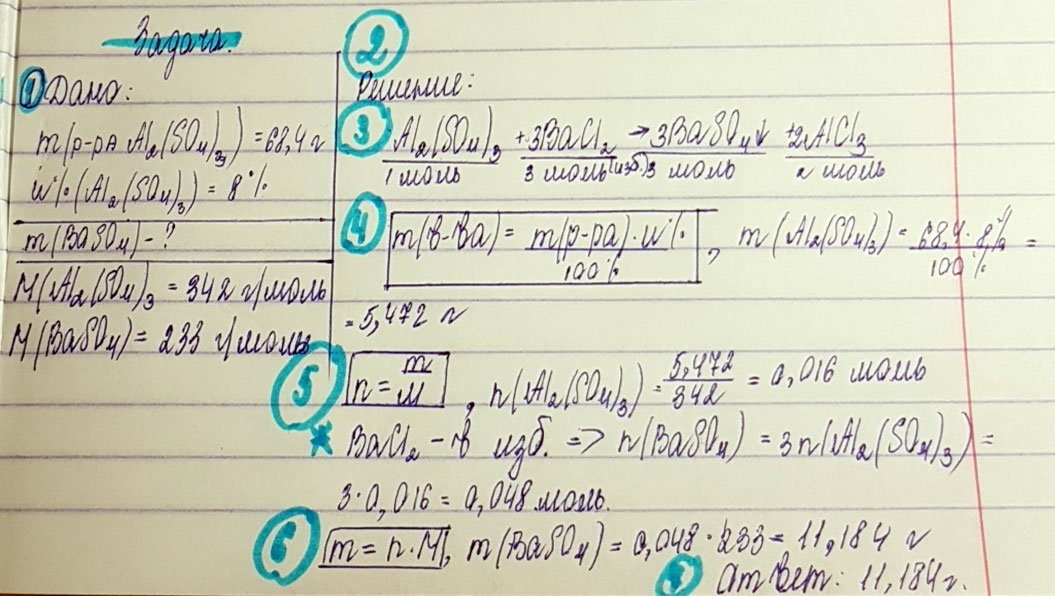 Задача.
① Дано:
m(р-ра Al₂(SO₄)₃) = 68,4 г
w%(Al₂(SO₄)₃) = 8%
m(BaSO₄) - ?
M(Al₂(SO₄)₃ = 342 г/моль
M(BaSO₄) = 233 г/моль
②
Решение:
③ Al₂(SO₄)₃ + 3BaCl₂ → 3BaSO₄↓ + 2AlCl₃
1 моль 3 моль (изб.) 3 моль 2 моль
④ m(в-ва) = m(р-ра)·w% / 100%, m(Al₂(SO₄)₃) = 68,4·8% / 100% =
= 5,472 г
⑤ n = m/M, n(Al₂(SO₄)₃) = 5,472/342 = 0,016 моль
* BaCl₂ - в изб. => n(BaSO₄) = 3n(Al₂(SO₄)₃) =
3·0,016 = 0,048 моль.
⑥ m = n·M, m(BaSO₄) = 0,048·233 = 11,184 г
Ответ: 11,184 г.